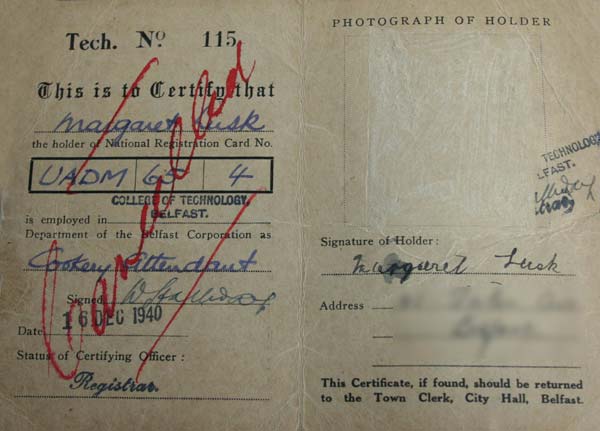 Tech. Nº 115
This is to Certify that
Margaret Lusk
the holder of National Registration Card No.
UADM 65 4
COLLEGE OF TECHNOLOGY,
BELFAST.
is employed in
Department of the Belfast Corporation as
Cookery Attendant
Signed
Date 16 DEC 1940
Status of Certifying Officer :
Registrar.
Cancelled
PHOTOGRAPH OF HOLDER
TECHNOLOGY
BELFAST.
Signature of Holder :
Margaret Lusk
Address
This Certificate, if found, should be returned
to the Town Clerk, City Hall, Belfast.